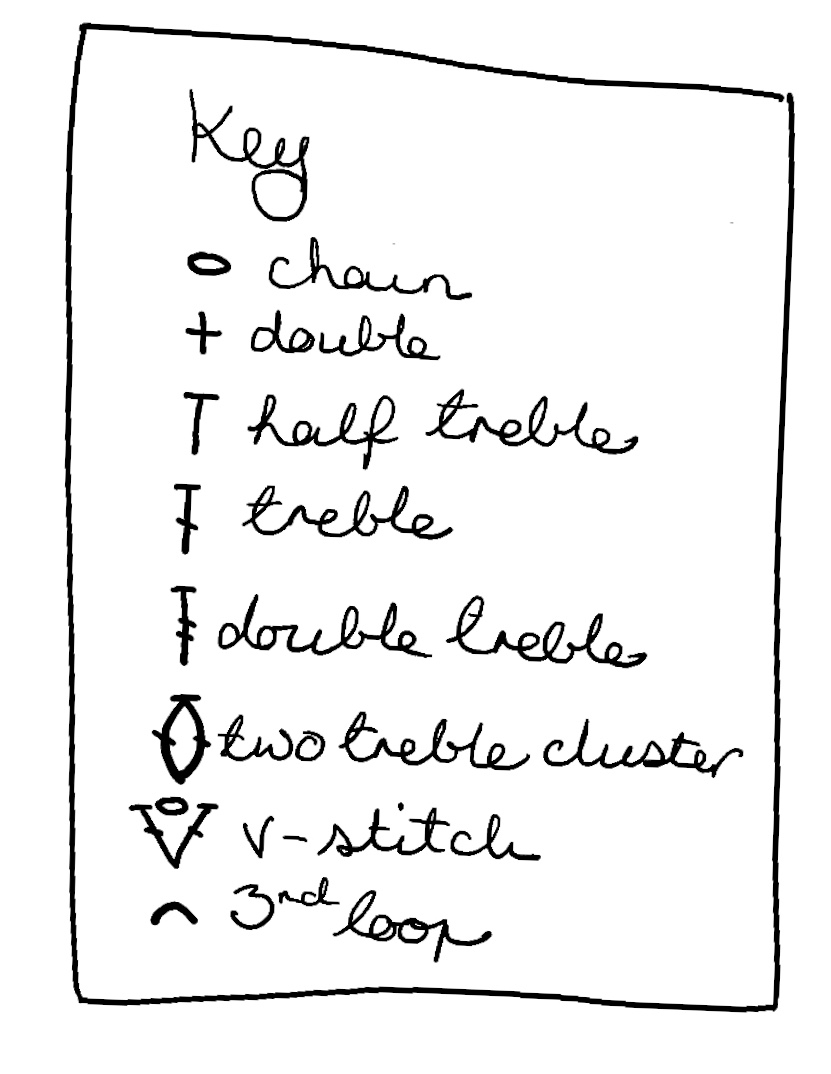 Key
chain
double
half treble
treble
double treble
two treble cluster
v-stitch
3rd loop